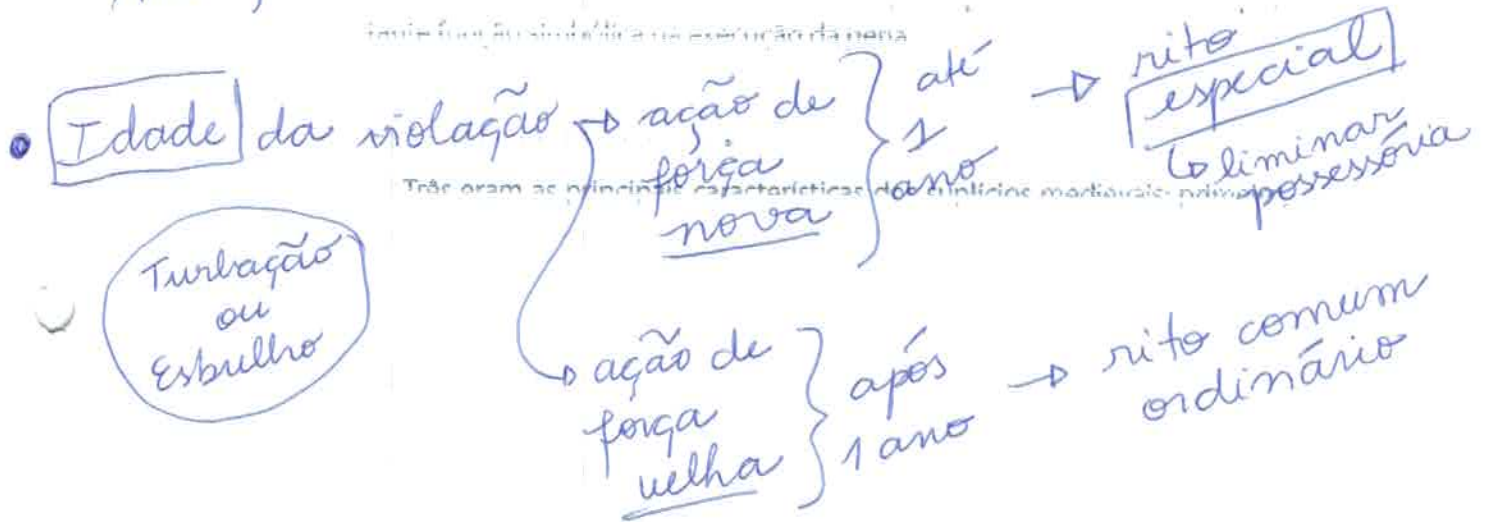 da pena
• Idade da violação → ação de força nova } até 1 ano → rito especial
↳ liminar possessória
Três eram as principais características dos suplícios medievais:
Turbação
ou
Esbulho
→ ação de força velha } após 1 ano → rito comum ordinário